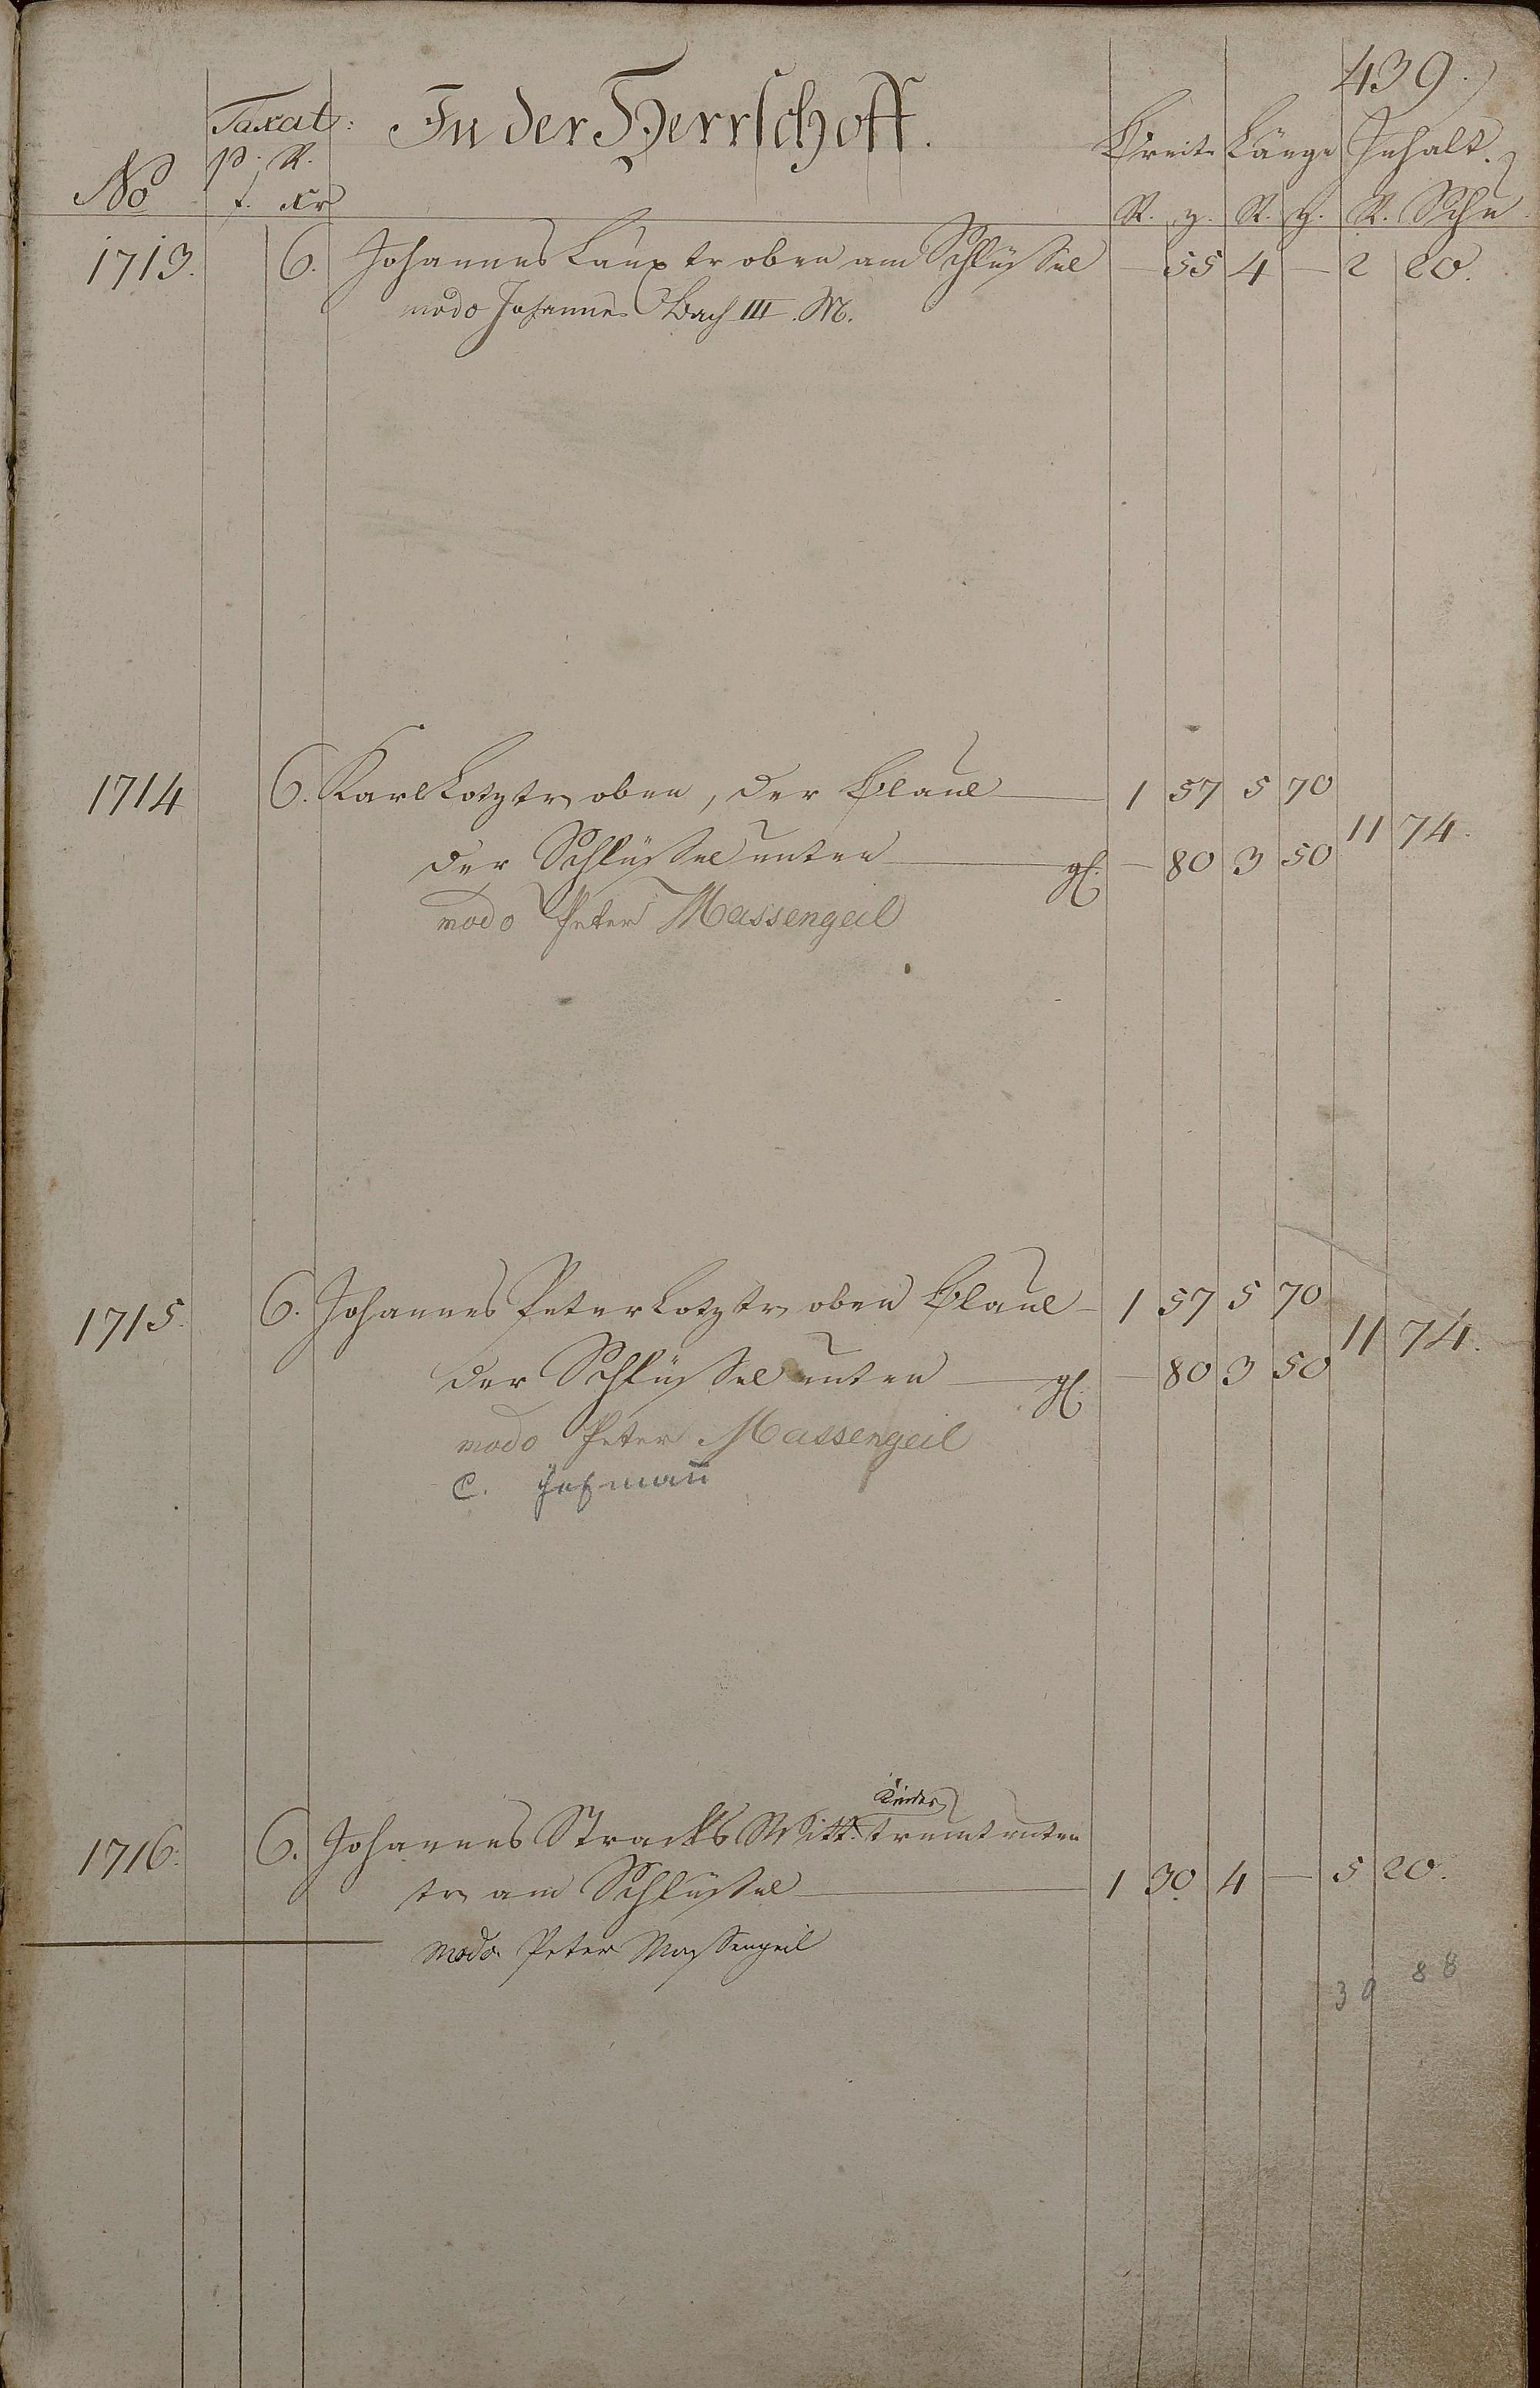 439.
Taxat: In der Herrschoff. Breite Länge Inhalt.
p. R.
No f. Xr R. z. R. z. R. Schu
1713. 6. Johannes Laux tr oben am Schlüssel — 55 4 — 2 20.
modo Johannes Bach III. M.
1714 6. Karl Lotz tr oben, der Blaul 1 57 5 70
11 74.
der Schlüssel unten gl. — 80 3 50
modo Peter Massengeil
1715. 6. Johannes Peter Lotz tr oben Blaul 1 57 5 70
11 74.
der Schlüssel unten gl. — 80 3 50
modo Peter Massengeil
C. Hofmañ
Kinder
1716. 6. Johannes Stracks Witt. unten
tr am Schlüssel 1 30 4 — 5 20.
modo Peter Massengeil
88